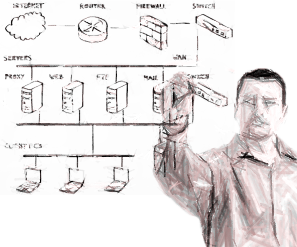 INTERNET ROUTER FIREWALL SWITCH
SERVERS WAN
PROXY WEB FTP MAIL SWITCH